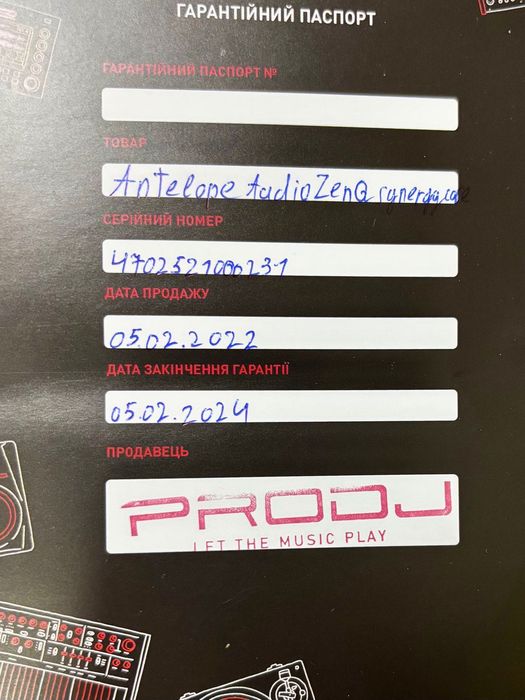 ГАРАНТІЙНИЙ ПАСПОРТ
ГАРАНТІЙНИЙ ПАСПОРТ №
ТОВАР
Antelope Audio ZenQ synergy core
СЕРІЙНИЙ НОМЕР
ДАТА ПРОДАЖУ
05.02.2022
ДАТА ЗАКІНЧЕННЯ ГАРАНТІЇ
05.02.2024
ПРОДАВЕЦЬ
PRODJ
LET THE MUSIC PLAY